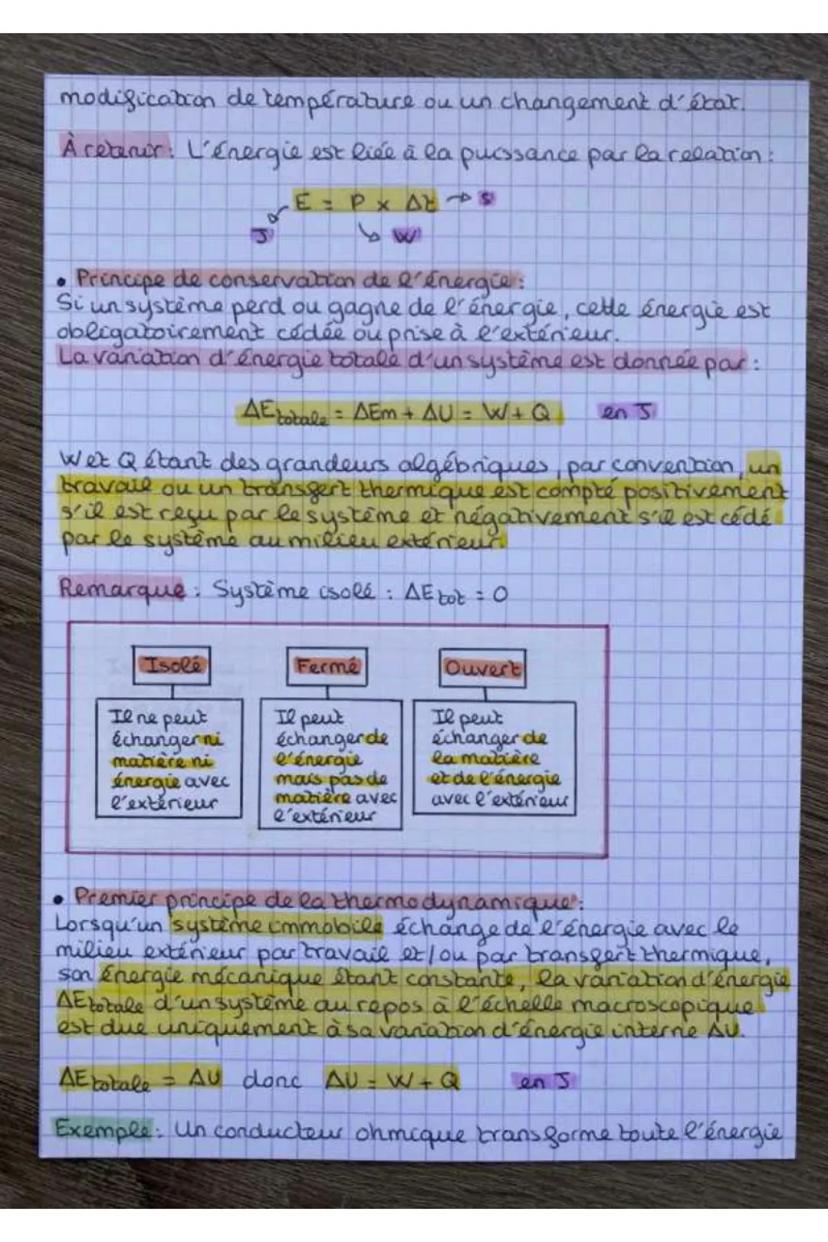 modification de température ou un changement d'état.
À retenir : L'énergie est liée à la puissance par la relation :
E = P x Δt → s
J W
• Principe de conservation de l'énergie :
Si un système perd ou gagne de l'énergie, cette énergie est
obligatoirement cédée ou prise à l'extérieur.
La variation d'énergie totale d'un système est donnée par :
ΔEtotale = ΔEm + ΔU = W + Q en J
W et Q étant des grandeurs algébriques, par convention, un
travail ou un transfert thermique est compté positivement
s'il est reçu par le système et négativement s'il est cédé
par le système au milieu extérieur.
Remarque : Système isolé : ΔEtot = 0
Isolé
Il ne peut
échanger ni
matière ni
énergie avec
l'extérieur
Fermé
Il peut
échanger de
l'énergie
mais pas de
matière avec
l'extérieur
Ouvert
Il peut
échanger de
la matière
et de l'énergie
avec l'extérieur
• Premier principe de la thermodynamique :
Lorsqu'un système immobile échange de l'énergie avec le
milieu extérieur par travail et/ou par transfert thermique,
son énergie mécanique étant constante, la variation d'énergie
ΔEtotale d'un système au repos à l'échelle macroscopique
est due uniquement à sa variation d'énergie interne ΔU.
ΔEtotale = ΔU donc ΔU = W + Q en J
Exemple : Un conducteur ohmique transforme toute l'énergie